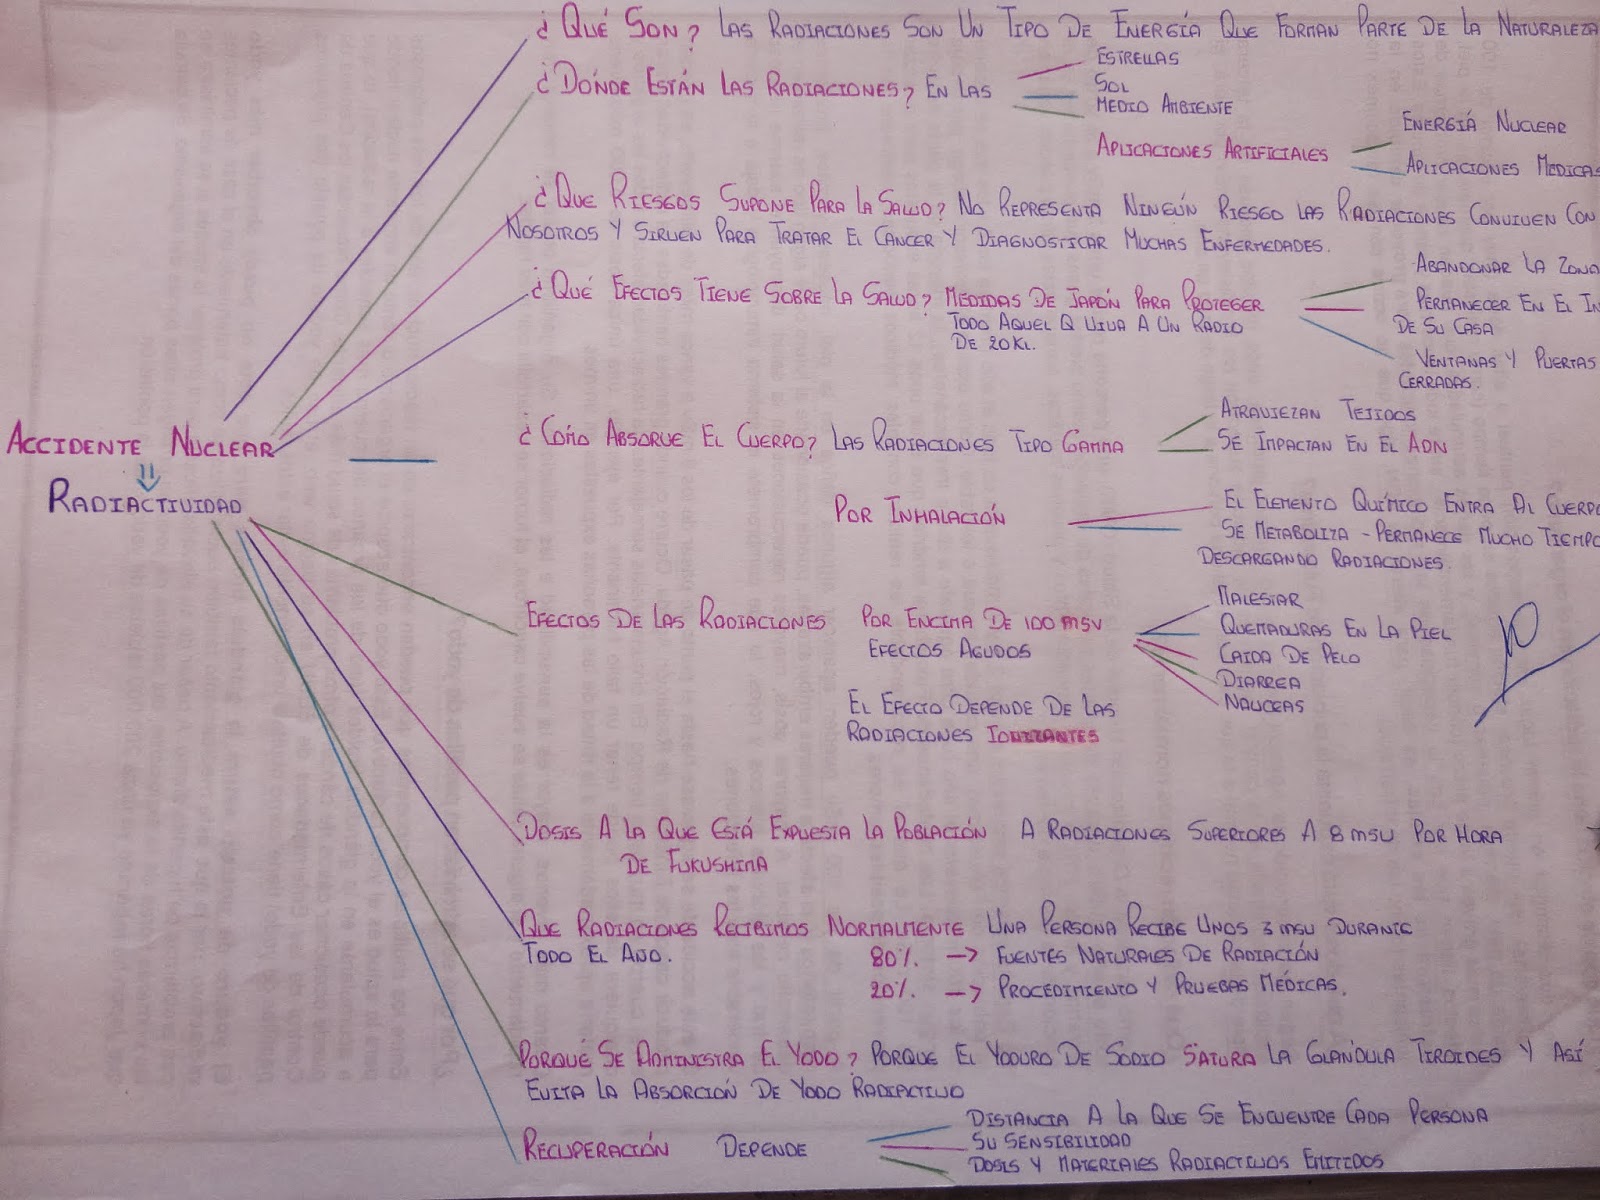 ¿ QUÉ SON? LAS RADIACIONES SON UN TIPO DE ENERGÍA QUE FORMAN PARTE DE LA NATURALEZA
¿ DÓNDE ESTÁN LAS RADIACIONES? EN LAS
ESTRELLAS
SOL
MEDIO AMBIENTE
APLICACIONES ARTIFICIALES
ENERGIÁ NUCLEAR
APLICACIONES MEDICAS
¿QUE RIESGOS SUPONE PARA LA SALUD? NO REPRESENTA NINGÚN RIESGO LAS RADIACIONES CONVIVEN CON
NOSOTROS Y SIRVEN PARA TRATAR EL CANCER Y DIAGNOSTICAR MUCHAS ENFERMEDADES.
¿QUÉ EFECTOS TIENE SOBRE LA SALUD? MEDIDAS DE JAPÓN PARA PROTEGER
TODO AQUEL Q VIVA A UN RADIO
DE 20KL.
ABANDONAR LA ZONA
PERMANECER EN EL IN
DE SU CASA
VENTANAS Y PUERTAS
CERRADAS.
ACCIDENTE NUCLEAR
RADIACTIVIDAD
¿ CÓMO ABSORVE EL CUERPO? LAS RADIACIONES TIPO GAMMA
ATRAVIEZAN TEJIDOS
SE IMPACTAN EN EL ADN
POR INHALACIÓN
EL ELEMENTO QUÍMICO ENTRA AL CUERPO
SE METABOLIZA - PERMANECE MUCHO TIEMPO
DESCARGANDO RADIACIONES.
EFECTOS DE LAS RADIACIONES POR ENCIMA DE 100 MSV
EFECTOS AGUDOS
MALESTAR
QUEMADURAS EN LA PIEL
CAIDA DE PELO
DIARREA
NAUCEAS
EL EFECTO DEPENDE DE LAS
RADIACIONES IONIZANTES
10
DOSIS A LA QUE ESTÁ EXPUESTA LA POBLACIÓN A RADIACIONES SUPERIORES A 8 MSV POR HORA
DE FUKUSHIMA
QUE RADIACIONES RECIBIMOS NORMALMENTE UNA PERSONA RECIBE UNOS 3 MSV DURANTE
TODO EL AÑO.
80% → FUENTES NATURALES DE RADIACIÓN
20% → PROCEDIMIENTO Y PRUEBAS MÉDICAS.
PORQUÉ SE ADMINESTRA EL YODO? PORQUE EL YODURO DE SODIO SATURA LA GLANDULA TIROIDES Y ASÍ
EVITA LA ABSORCIÓN DE YODO RADIACTIVO
RECUPERACIÓN DEPENDE
DISTANCIA A LA QUE SE ENCUENTRE CADA PERSONA
SU SENSIBILIDAD
DOSIS Y MATERIALES RADIACTIVOS EMITIDOS